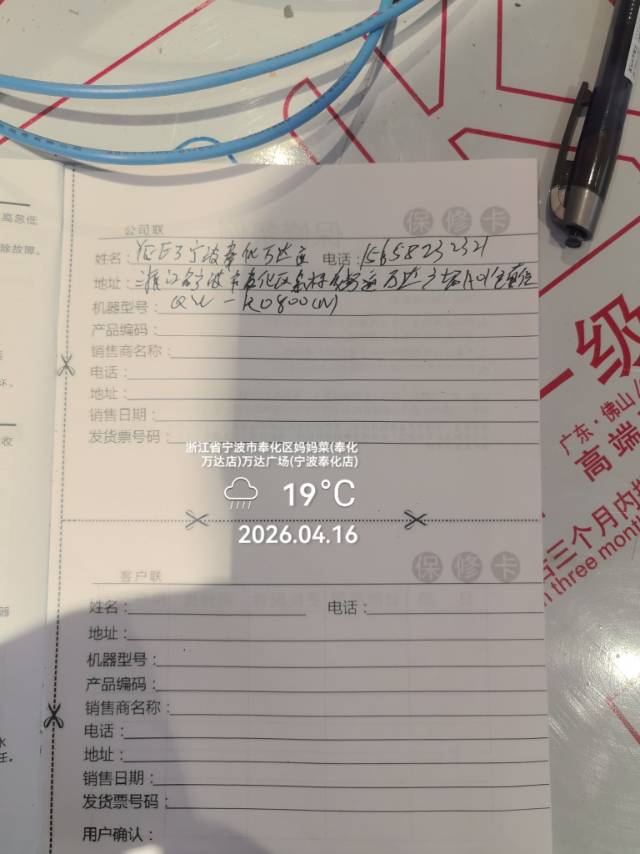 高急低
除故障、
坏、
收
器
水
任。
公司联
保修卡
姓名: 宁波奉化万达店 电话: 15658232321
地址: 浙江省宁波市奉化区 万达广场
机器型号: QW-RD800(W)
产品编码:
销售商名称:
电话:
地址:
销售日期:
发货票号码:
浙江省宁波市奉化区妈妈菜(奉化
万达店)万达广场(宁波奉化店)
19°C
2026.04.16
客户联
保修卡
姓名: 电话:
地址:
机器型号:
产品编码:
销售商名称:
电话:
地址:
销售日期:
发货票号码:
用户确认:
一级
广东·佛山
高端
三个月内
three mont